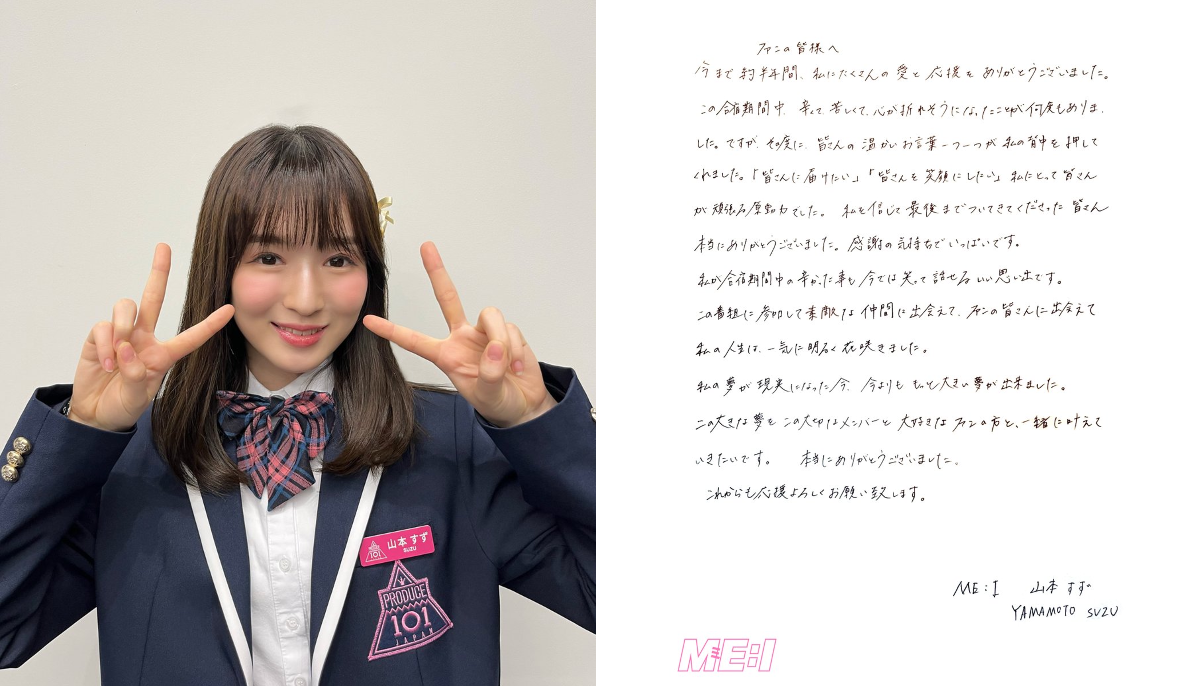 山本 すず
SUZU
101
PRODUCE
101
JAPAN
ファンの皆様へ
今まで約半年間、私にたくさんの愛と応援をありがとうございました。
この合宿期間中、辛くて、苦しくて、心が折れそうになったことが何度もありま
した。ですが、その度に、皆さんの温かいお言葉一つ一つが私の背中を押して
くれました。「皆さんに届けたい」「皆さんを笑顔にしたい」私にとって皆さん
が頑張る原動力でした。私を信じて最後までついてきてくださった皆さん
本当にありがとうございました。感謝の気持ちでいっぱいです。
私が合宿期間中の辛かった事も今では笑って話せるいい思い出です。
この番組に参加して素敵な仲間に出会えて、ファンの皆さんに出会えて
私の人生は、一気に明るく花咲きました。
私の夢が現実になった今、今よりももっと大きい夢が出来ました。
この大きな夢をこの大切なメンバーと大好きなファンの方と、一緒に叶えて
いきたいです。 本当にありがとうございました。
これからも応援よろしくお願い致します。
ME:I 山本 すず
YAMAMOTO SUZU
ME:I